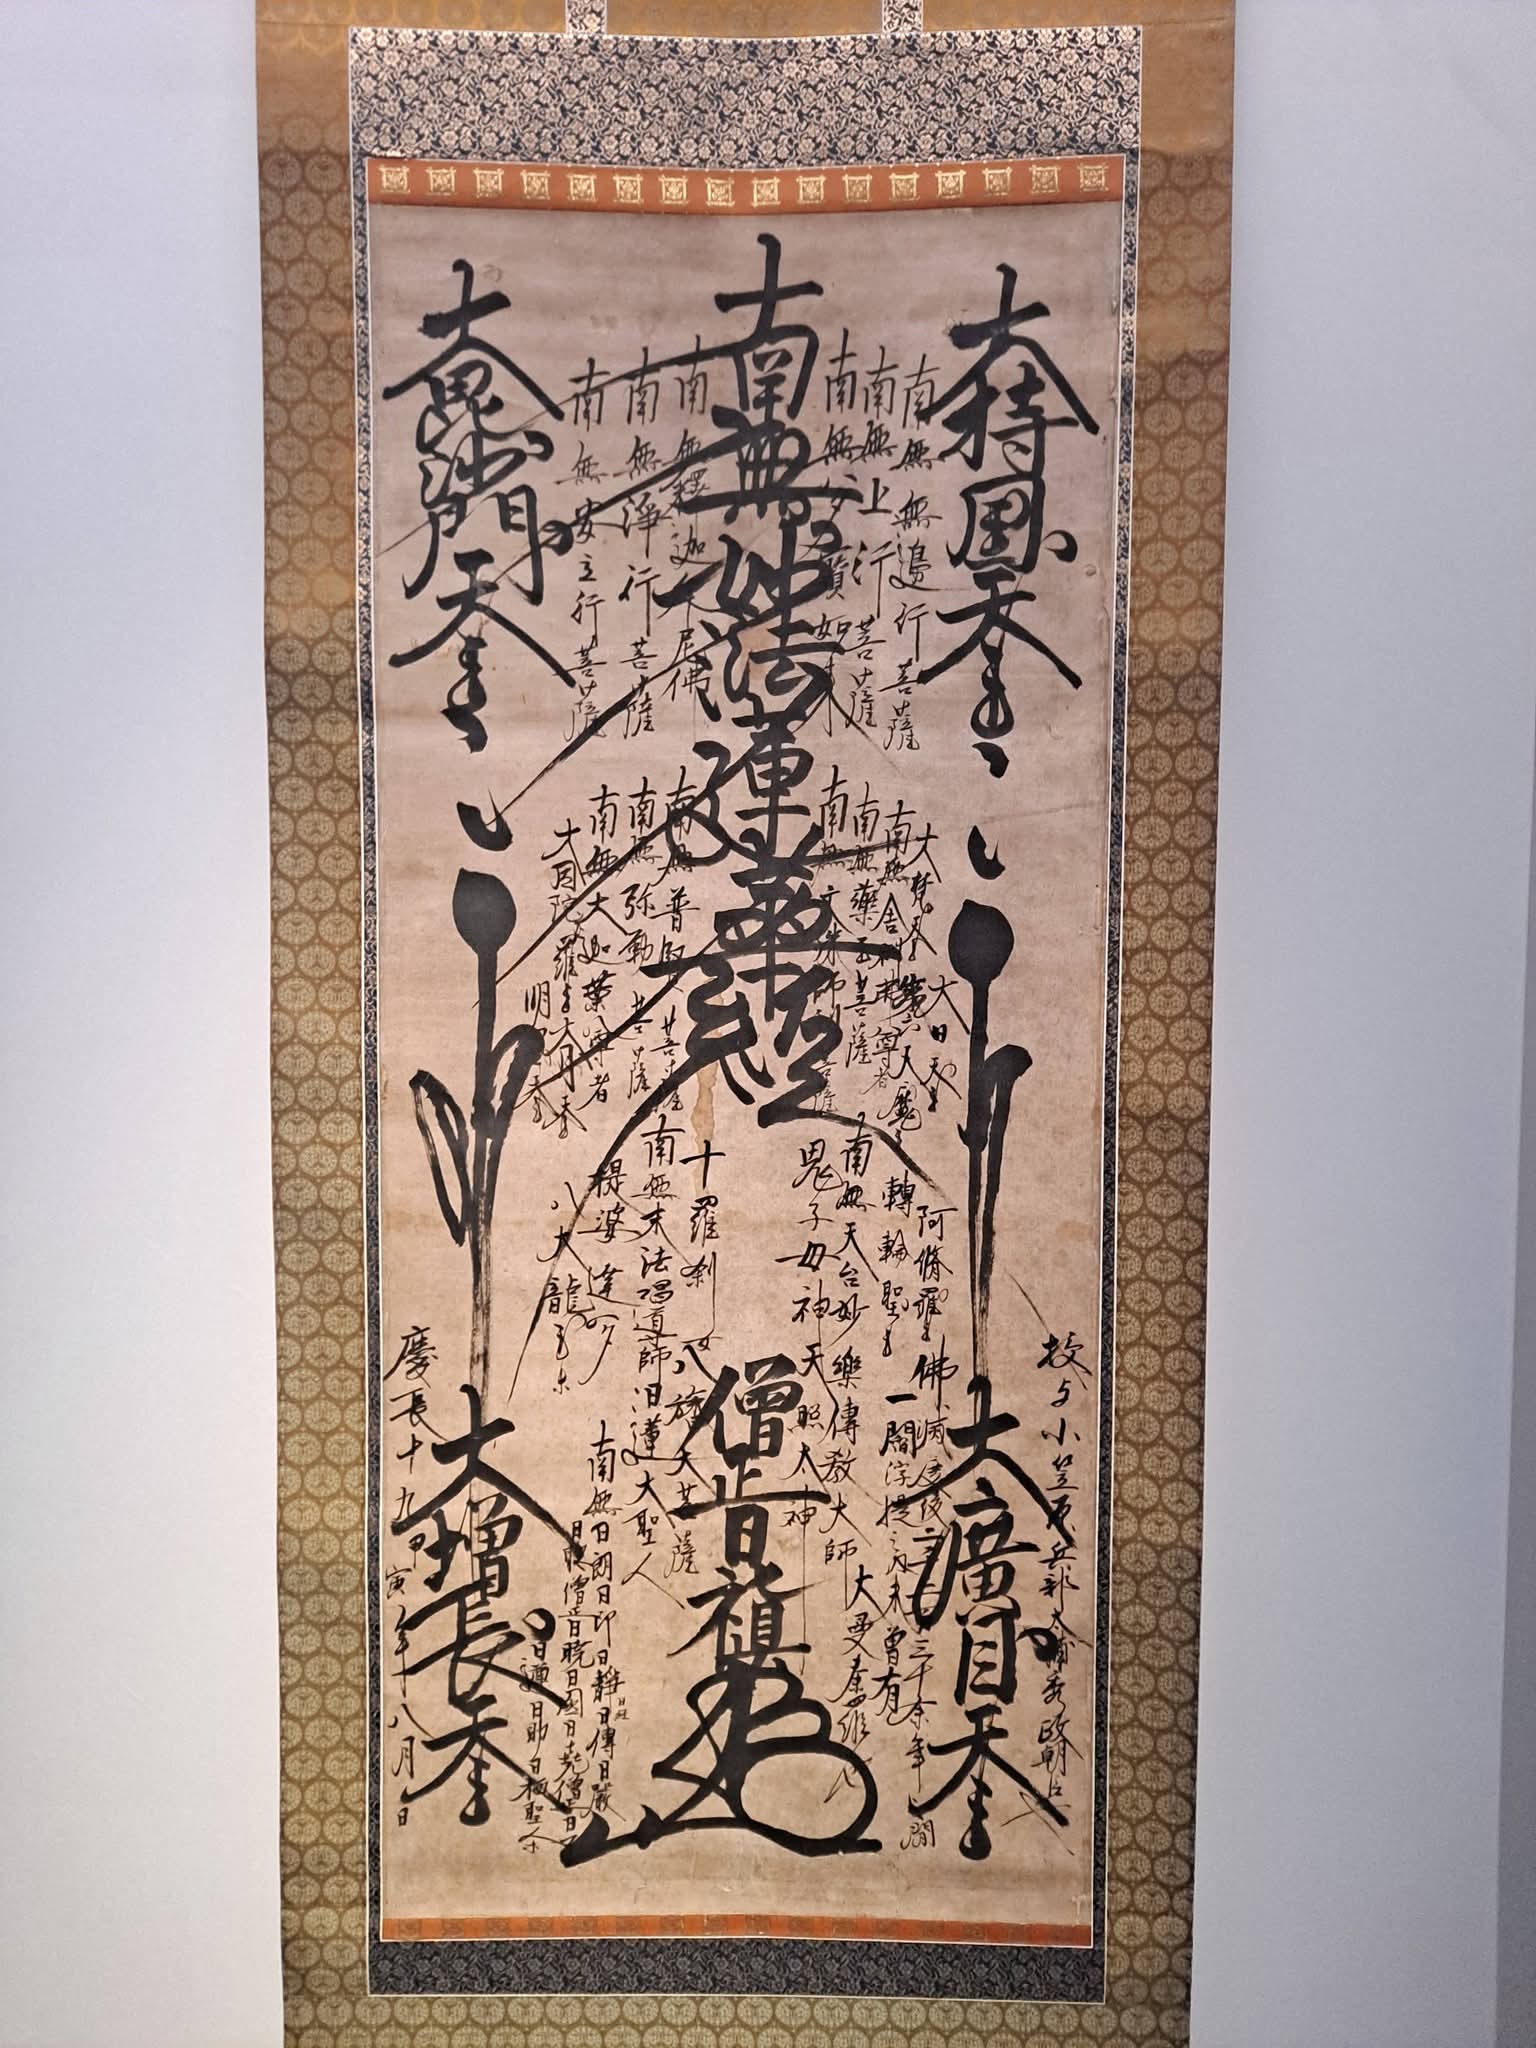 大持國天王
南無無邊行菩薩
南無上行菩薩
南無多寶如來
南無妙法蓮華經
南無釋迦牟尼佛
南無淨行菩薩
南無安立行菩薩
大毘沙門天王
大日天王
大梵天王
第六天魔王
南無舎利弗尊者
南無藥王菩薩
南無文殊師利菩薩
南無普賢菩薩
南無弥勒菩薩
南無大迦葉尊者
大月天王
明星天王
阿脩羅王
轉輪聖王
南無天台妙樂傳教大師
鬼子母神
十羅刹女
南無末法唱導師日蓮大聖人
提婆達多
八大龍王
天照太神
八旛大菩薩
授与小笠原兵部太輔秀政朝臣
大廣目天王
佛滅度後二千二百三十余年之間
一閻浮提之内未曾有
大曼荼羅也
僧正日禛
南無日朗日印日靜日傳日嚴
大増長天王
慶長十九甲寅年八月日